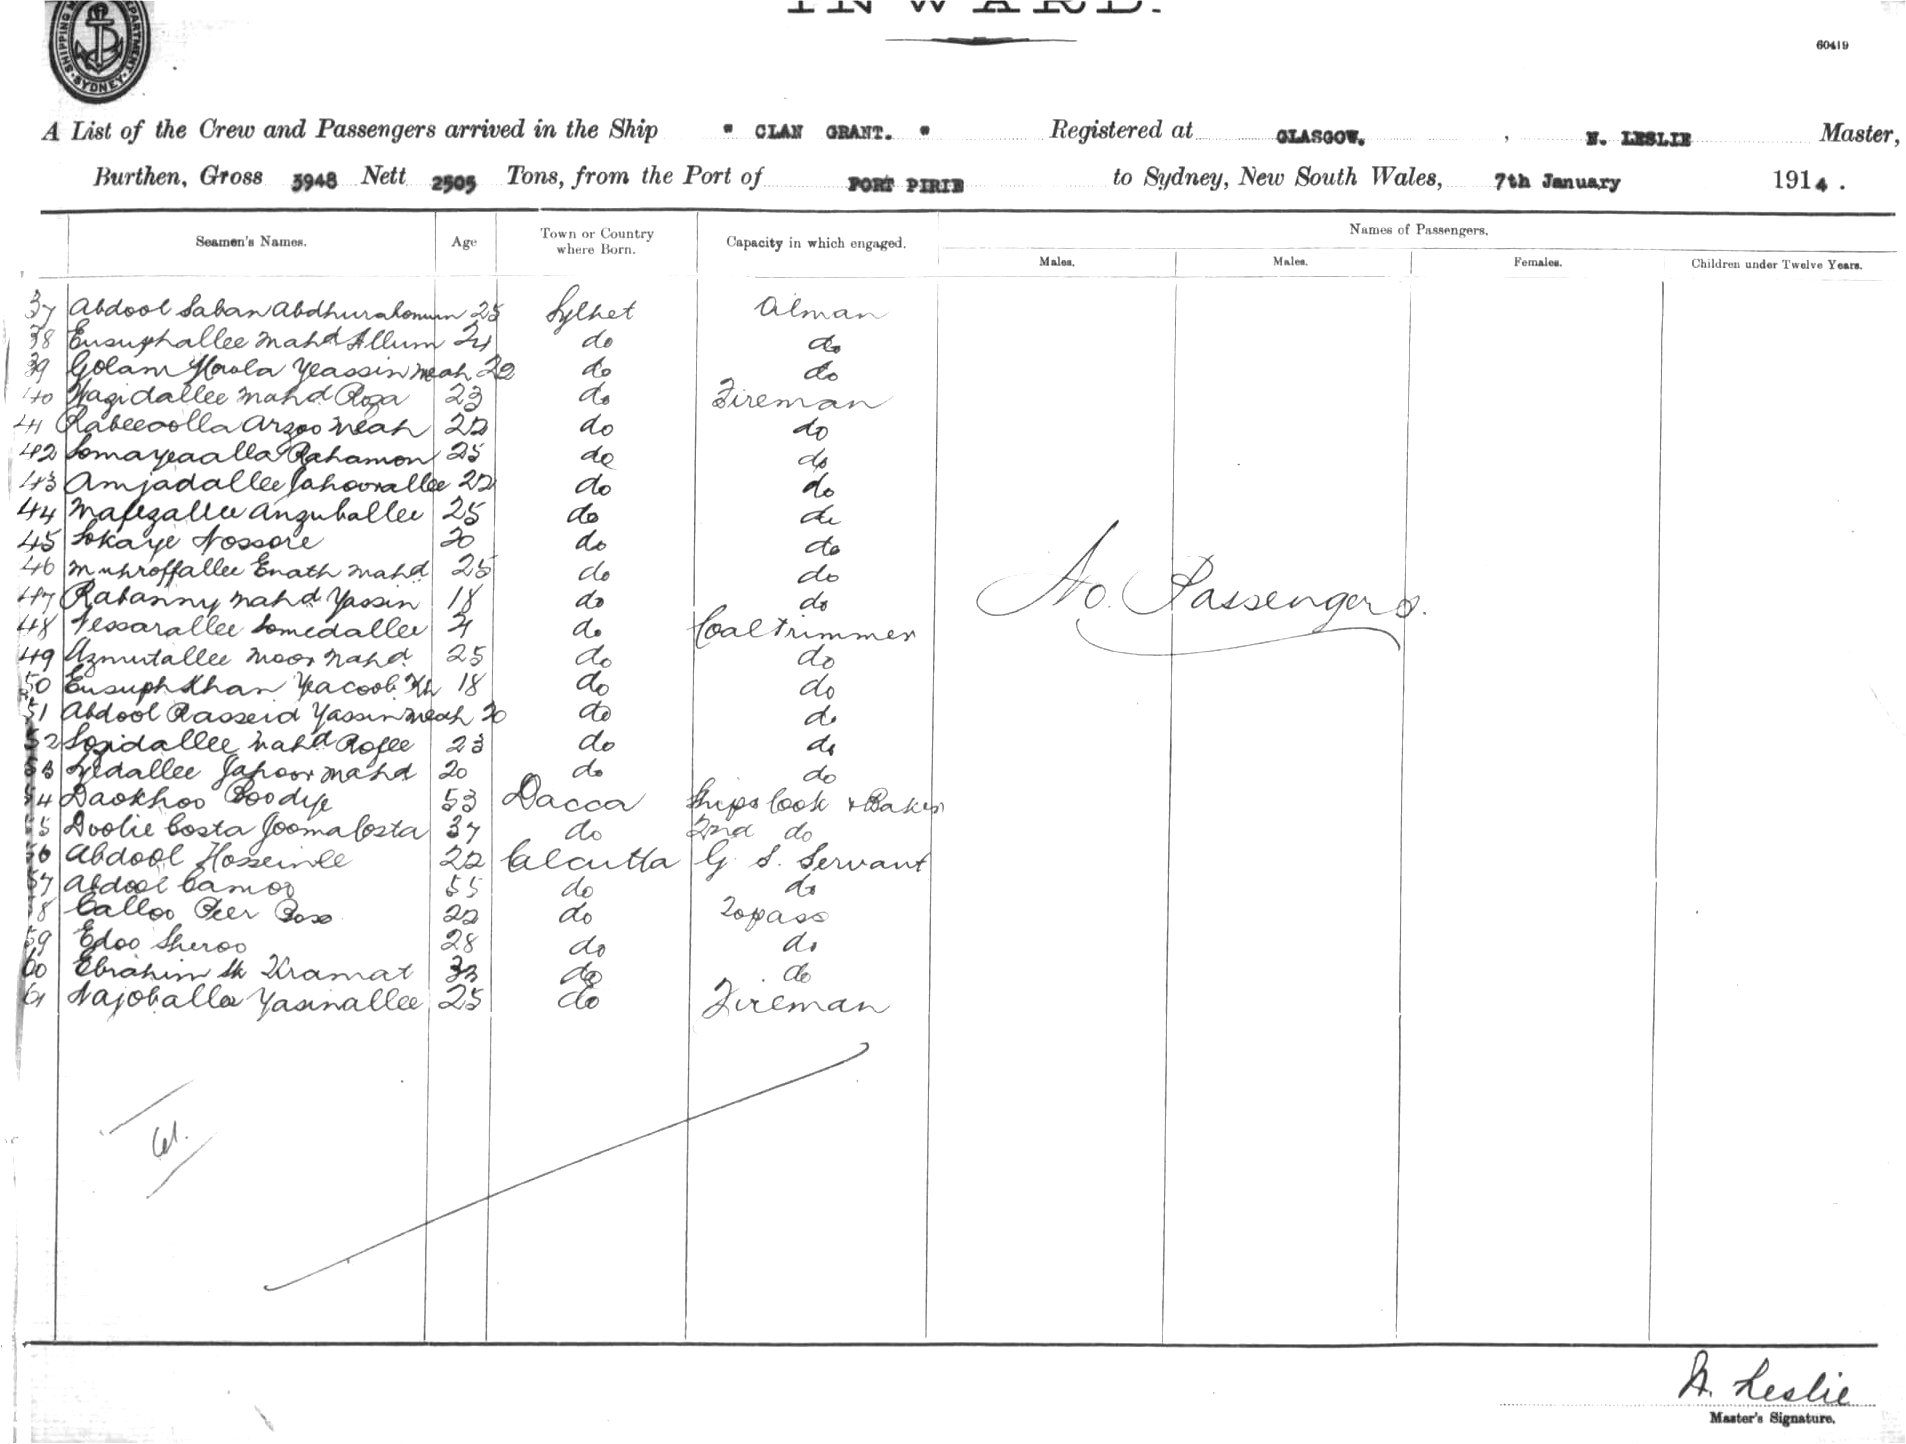 INWARD.
SHIPPING DEPARTMENT SYDNEY
60419
A List of the Crew and Passengers arrived in the Ship " CLAN GRANT. " Registered at GLASGOW. , N. LESLIE Master,
Burthen, Gross 3948 Nett 2505 Tons, from the Port of PORT PIRIE to Sydney, New South Wales, 7th January 1914.
Seamen's Names. Age Town or Country where Born. Capacity in which engaged. Names of Passengers.
Males. Males. Females. Children under Twelve Years.
37 Abdool Saban Abdhurahomun 25 Sylhet Oilman
38 Eusuphallee Mahd Allum 24 do do
39 Golam Yeassin Meah 22 do do
40 Wagidallee Mahd Roza 23 do Fireman
41 Rabeeaolla Arzoo Meah 22 do do
42 Somayeaalla Rahamon 25 do do
43 Amjadallee Jahoorallee 22 do do
44 Mafezallee Anzuballee 25 do do
45 Sokaye Nossore 20 do do
46 Muhroffallee Enath Mahd 25 do do
47 Rabanny Mahd Yassin 18 do do
48 Nessarallee Somedallee do Coal Trimmer
49 Azmutallee Moor Mahd 25 do do
50 Eusuph Khan Yeacoob Kh 18 do do
51 Abdool Rasseid Yassin Meah 20 do do
52 Sozidallee Mahd Rofee 23 do do
53 Jahoor Mahd 20 do do
54 Daokhoo 53 Dacca Ships Cook & Baker
55 Doolie Costa Jooma Costa 37 do 2nd do
56 Abdool Hosseinee 22 Calcutta G. S. Servant
57 Abdool Camoo 55 do do
58 Calloo Peer Box 22 do Topass
59 Edoo Sheroo 28 do do
60 Ebrahim Sk Kramat 33 do do
61 Najoballa Yasinallee 25 do Fireman
No. Passengers.
61.
N. Leslie
Master's Signature.